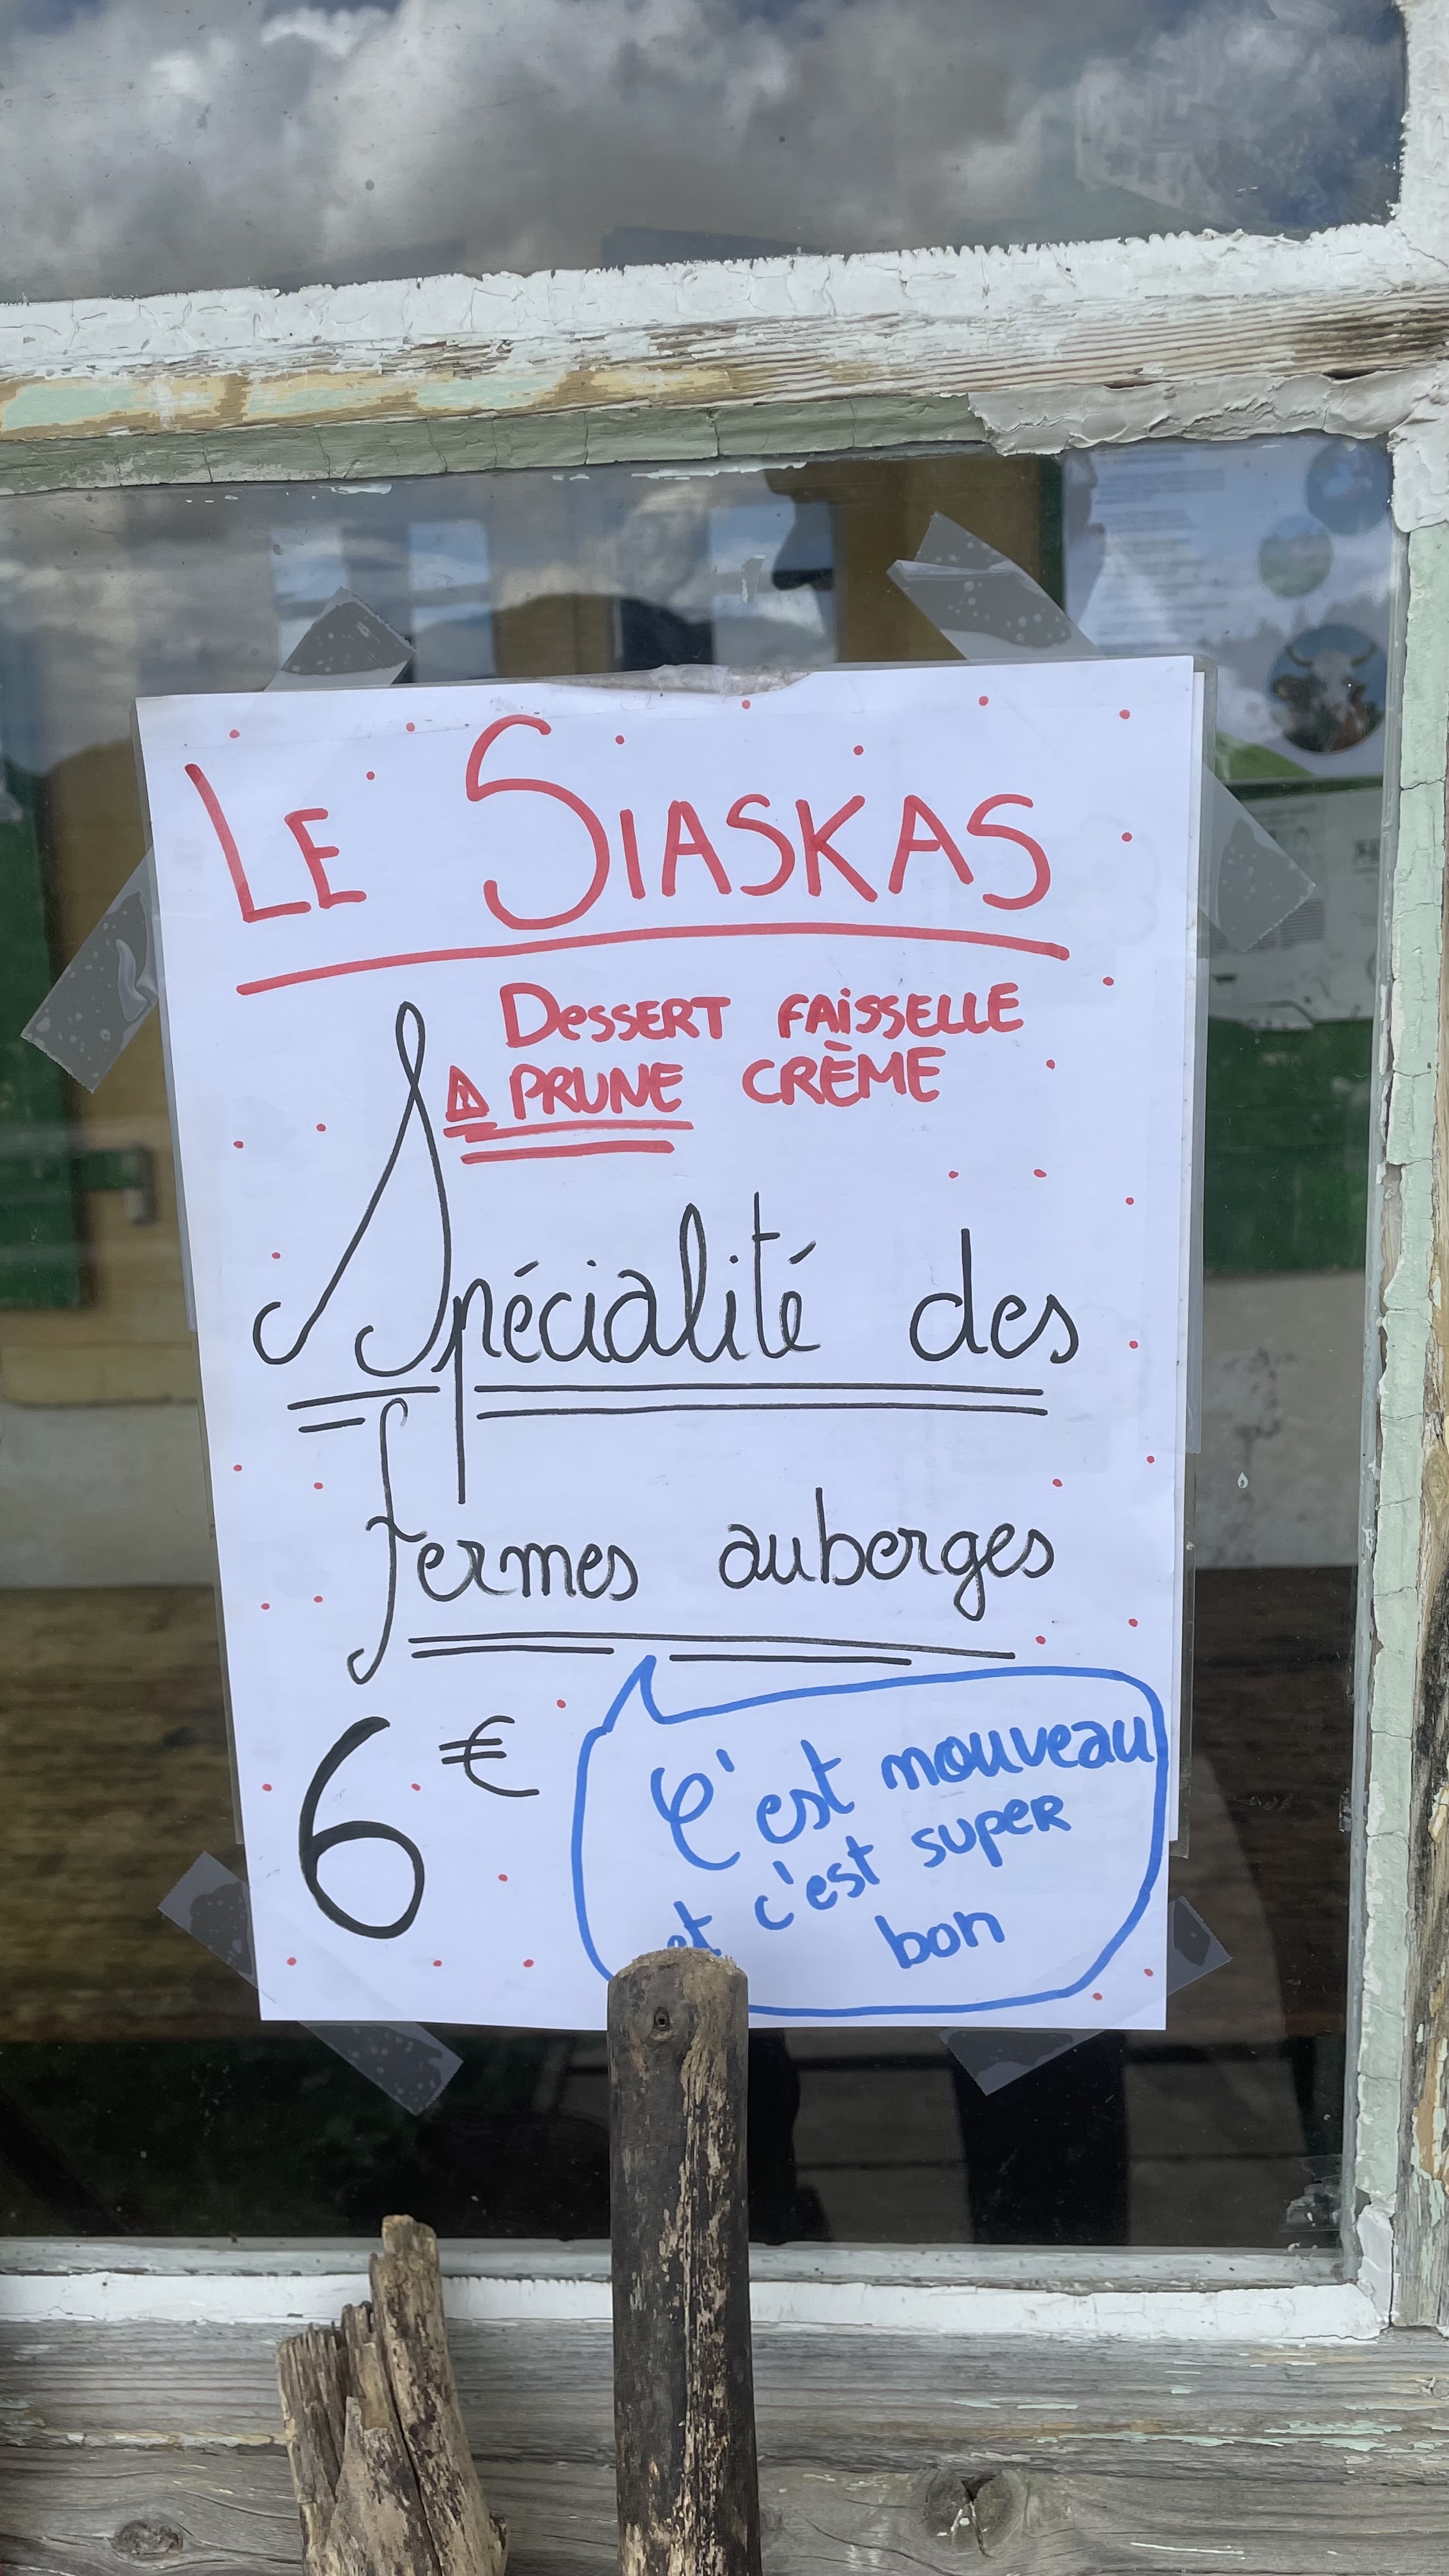 LE SIASKAS
DESSERT FAISSELLE
⚠ PRUNE CRÈME
Spécialité des
fermes auberges
6 €
C'est nouveau
et c'est super
bon